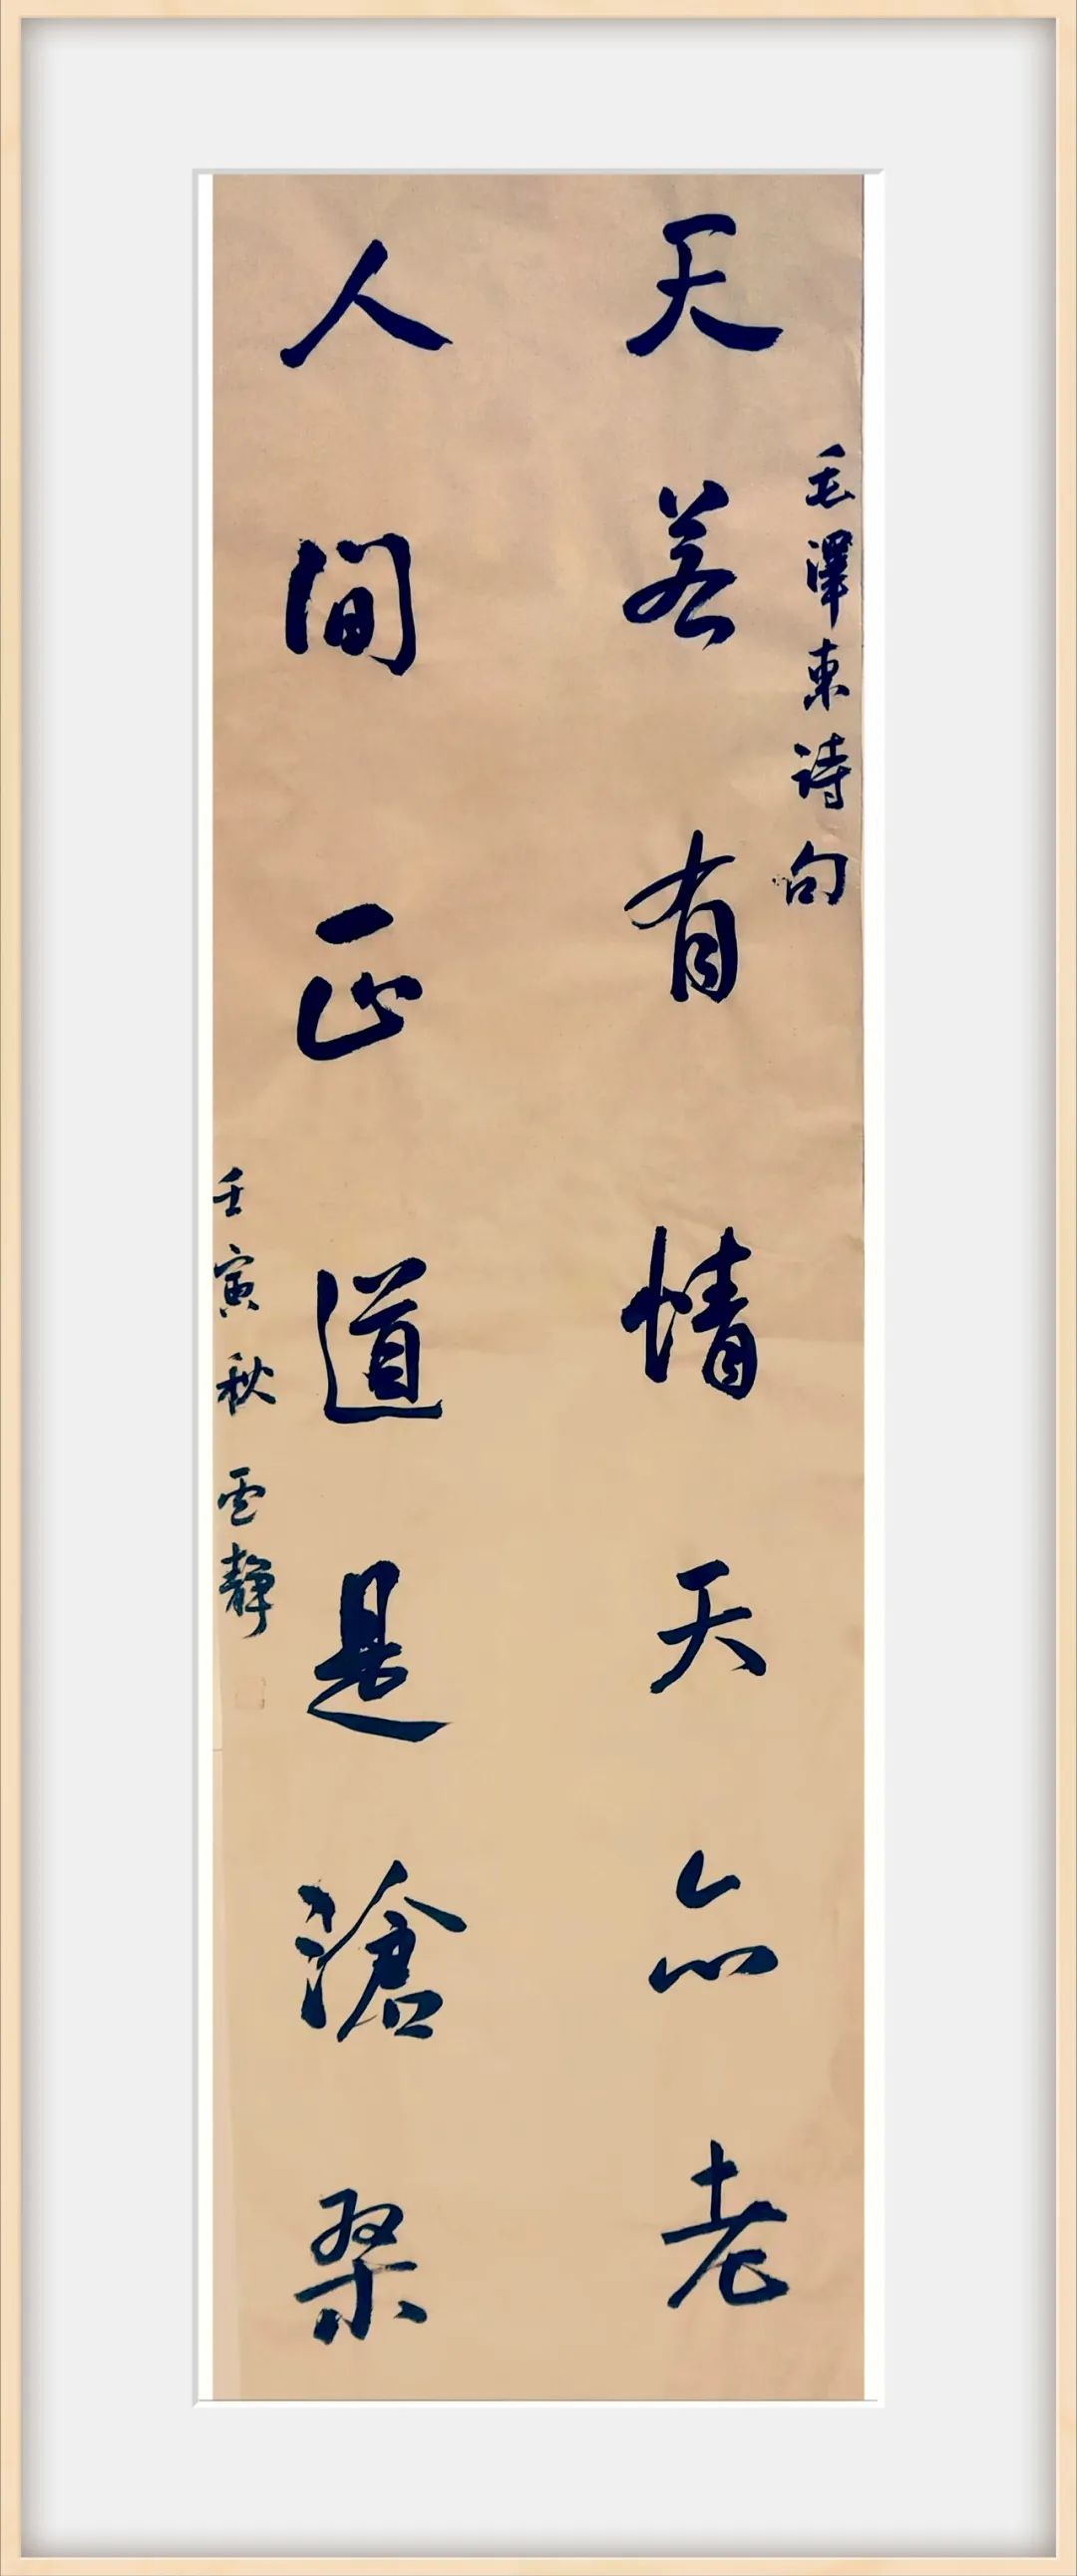 毛澤東詩句
天若有情天亦老
人间正道是滄桑
壬寅秋 雲靜